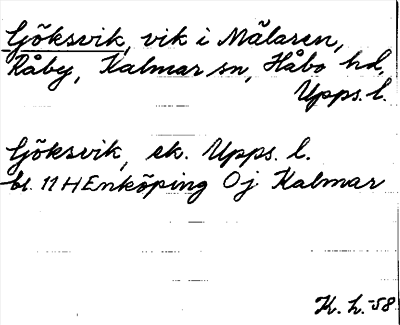 Gjöksvik, vik i Mälaren,
Råby, Kalmar sn, Håbo hd,
Upps. l.
Gjöksvik, ek. Upps. l.
bl. 11 H Enköping Oj Kalmar
K. h. -58